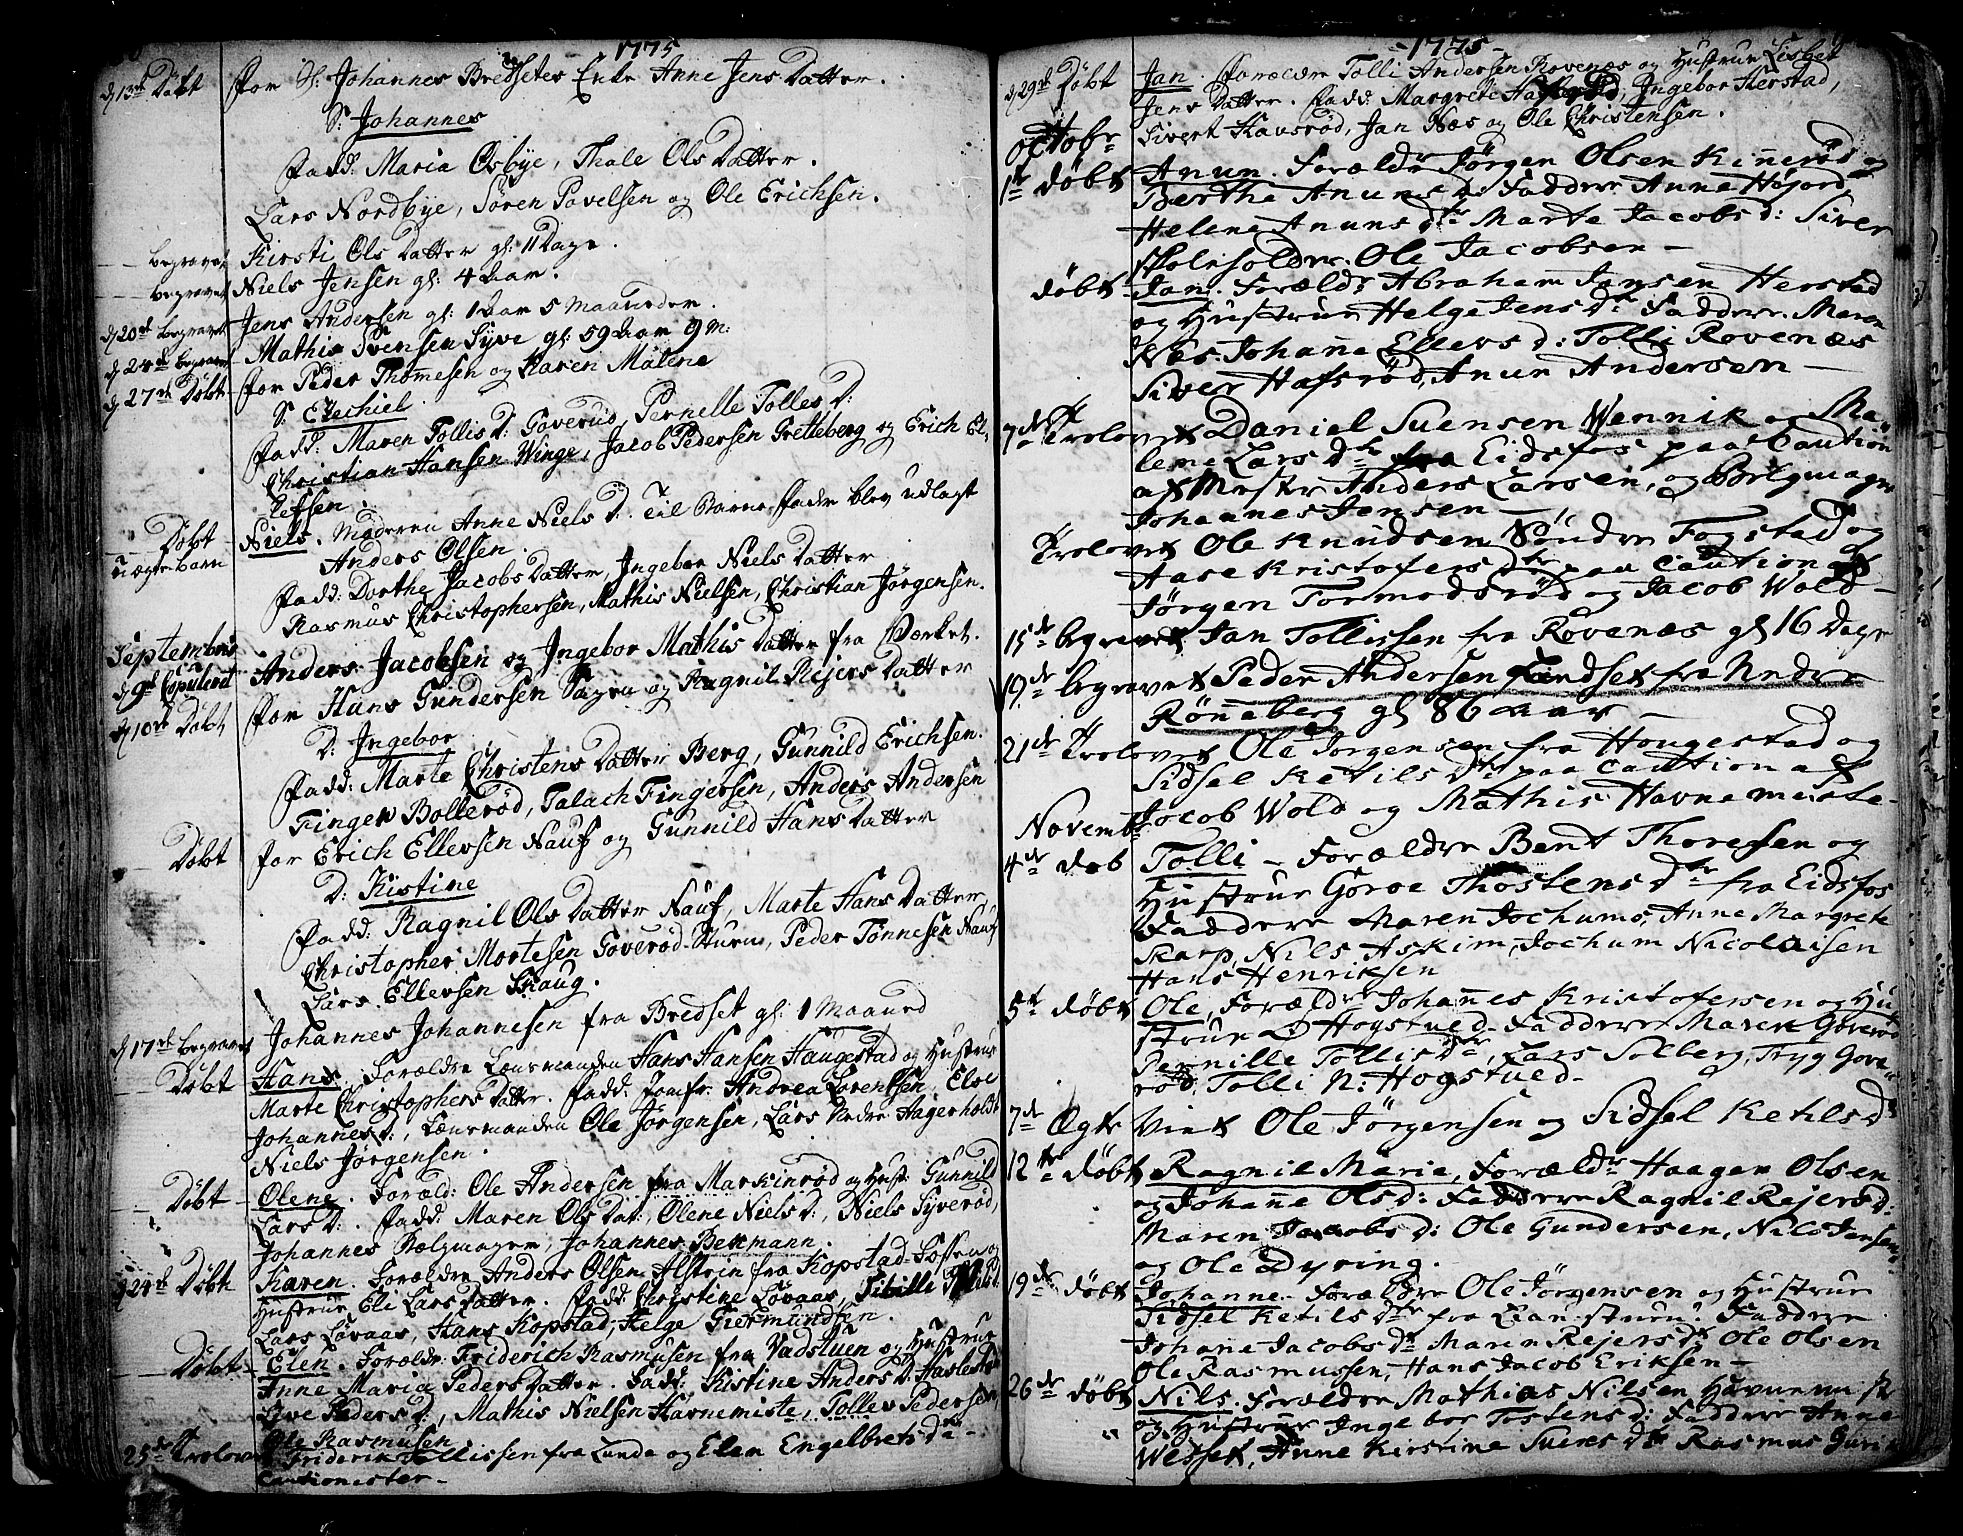 1775
d 13de Døbt For Sl. Johannes Bredsetes Enke Anne Jens Datter.
S: Johannes
Fadd: Maria Øsbye, Thale Ols Datter.
Lars Nordbye, Søren Povelsen og Ole Erichsen.
Begravet Kirsti Ols Datter gl: 11 Dage.
Begravet Niels Jensen gl: 4 Aar.
d 20de begravet Jens Andersen gl: 1 Aar 5 Maaneder.
d 24de begravet Mathis Svensen Syve gl: 59 Aar 9 M:
d 27de Døbt For Peder Thommesen og Karen Malene
S. Ezechiel
Fadd: Maren Tollis D: Goverud, Pernelle Tolles D:
Christian Hansen Winge, Jacob Pedersen Fretteberg og Erich El-
lefsen.
Døbt Niels. Moderen Anne Niels D. Til Barne Fader blev udlagt
u ægte barn Anders Olsen.
Fadd: Dorthe Jacobs Datter, Ingebor Niels Datter
Rasmus Christophersen, Mathis Nielsen, Christian Jørgensen.
Septembris
d 9de Copuleret Anders Jacobsen og Ingebor Mathis Datter fra Værket.
d 10de Døbt For Hans Gundersen Sagen og Ragnil Rejers Datter
D: Ingebor
Fadd: Marte Christens Datter Berg, Gunnild Erichsen.
Finger Bollerød, Talach Fingersen, Anders Andersen
Døbt For Erich Ellevsen Nauf og Gunnild Hans Datter
D: Kistine
Fadd: Ragnil Ols Datter Nauf, Marte Hans Datter
Christopher Mortesen Goverød-Stuen, Peder Tønnesen Nauf
Lars Ellevsen Skaug.
d 17de begravet Johannes Johannesen fra Bredset gl: 1 Maaned
Døbt Hans. Forældre Lænsmanden Hans Hansen Haugestad og Hustrue
Marte Christophers Datter. Fadd: Jomfr: Andrea Lorentsen, Else
Johannes D:, Lænsmanden Ole Jørgensen, Lars Nedre Aagerholdt
Niels Jørgensen.
Døbt Olene. Foræld: Ole Andersen fra Markinrød og Hust: Gunnild
Lars D: Fadd: Maren Ols Dat:, Olene Niels D:, Niels Syverød,
Johannes Bælgmager, Johannes Bekmann.
d 24de Døbt Karen. Forældre Anders Olsen Alstrin fra Kopstad-Lossen og
Hustrue Eli Lars Datter. Fadd: Christine Løvaas, Sibille
Lars Løvaas, Hans Kopstad, Helge Giermundsen.
Døbt Elen. Forældr: Friderich Rasmusen fra Vadstuen og Hustrue
Anne Maria Peders Datter. Fadd: Kistine Anders D: Hasle
Live Peders D:, Mathis Nielsen Havnemiste, Tollev Pedersen
Ole Rasmusen
25de Trolovet Friderik Tollissen fra Lunde og Elen Engelbrets Dr.
Cautionister
1775
d 29de Døbt Jan. Forældre Tolli Andersen Rovenæs og Hustrue Lisbet
Jens Datter. Fadd: Margrete, Ingebor Herstad,
Sivert Havsrød, Jan Næs og Ole Christensen.
Octobr
1te døbt Anun. Forældre Jørgen Olsen Kinnerød og
Berthe Anuns D. Faddere Anne Højord
Helene Anuns Dtr Marte Jacobs d: Siver
Skoleholder. Ole Jacobsen
døbt Jan. Forældr Abraham Jansen Herstad
og Hustrue Helge Jens Dr Faddere. Maren
Næs Johanne Ellevs d: Tolli Rovenæs
Siver Hafsrød, Anun Andersen
7de Trolovet Daniel Suensen Wennik og Ma-
lene Lars Dtr fra Eidsfos paa Caution
af Mester Anders Larsen, og Bælgmager
Johannes Jensen
Trolovet Ole Knudsen Søndre Fogstad og
Aase Kristofersdtr paa Caution af
Jørgen Tormodsrød og Jacob Wold
15de begravet Jan Tollissen fra Rovenæs gl 16 Dage
19de begravet Peder Andersen Findset fra Nedre
Rønneberg gl 86 Aar
21de Trolovet Ole Jørgensen fra Hougestad og
Sidsel Ketils Dtr paa Caution af
Jacob Wold og Mathis Havnemeste-
Novembr
4de døb Tolli - Forældre Bent Thoresen og
Hustrue Goroe Thostens Dtr fra Eidsfos
Faddere Maren Jochums, Anne Margrete
Skarp, Nils Askim, Jochum Nicolaisen
Hans Henriksen
5te døbt Ole, Forældr Johannes Kristofersen og Hu-
strue D Hogstued. Faddere Maren Goverød
Pernille Tollis Dr, Lars Solberg, Tryg Gove-
rød, Tolli N: Hogstued.
7de Ægte Viet Ole Jørgensen og Sidsel Ketils D
12te døbt Ragnil Marie, Forældr Haagen Olsen
og Johanne Ols d: Faddere Ragnil Rejers d:
Maren Jacobs d: Ole Gundersen, Nils Jensen
og Ole Dyring.
19de døbt Johanne. Forældre Ole Jørgensen og Hustrue
Sidsel Ketils Dtr fra Lianstuen. Faddere
Johane Jacobs Dr Maren Rejers Dr Ole Olsen
Ole Rasmussen, Hans Jacob Eriksen
26de døbt Nils. Forældre Mathias Nilsen Havnemistr
og Hustrue Ingebor Tostens d: Faddere Anne
Wesset, Anne Kirstine Suens Dtr Rasmus